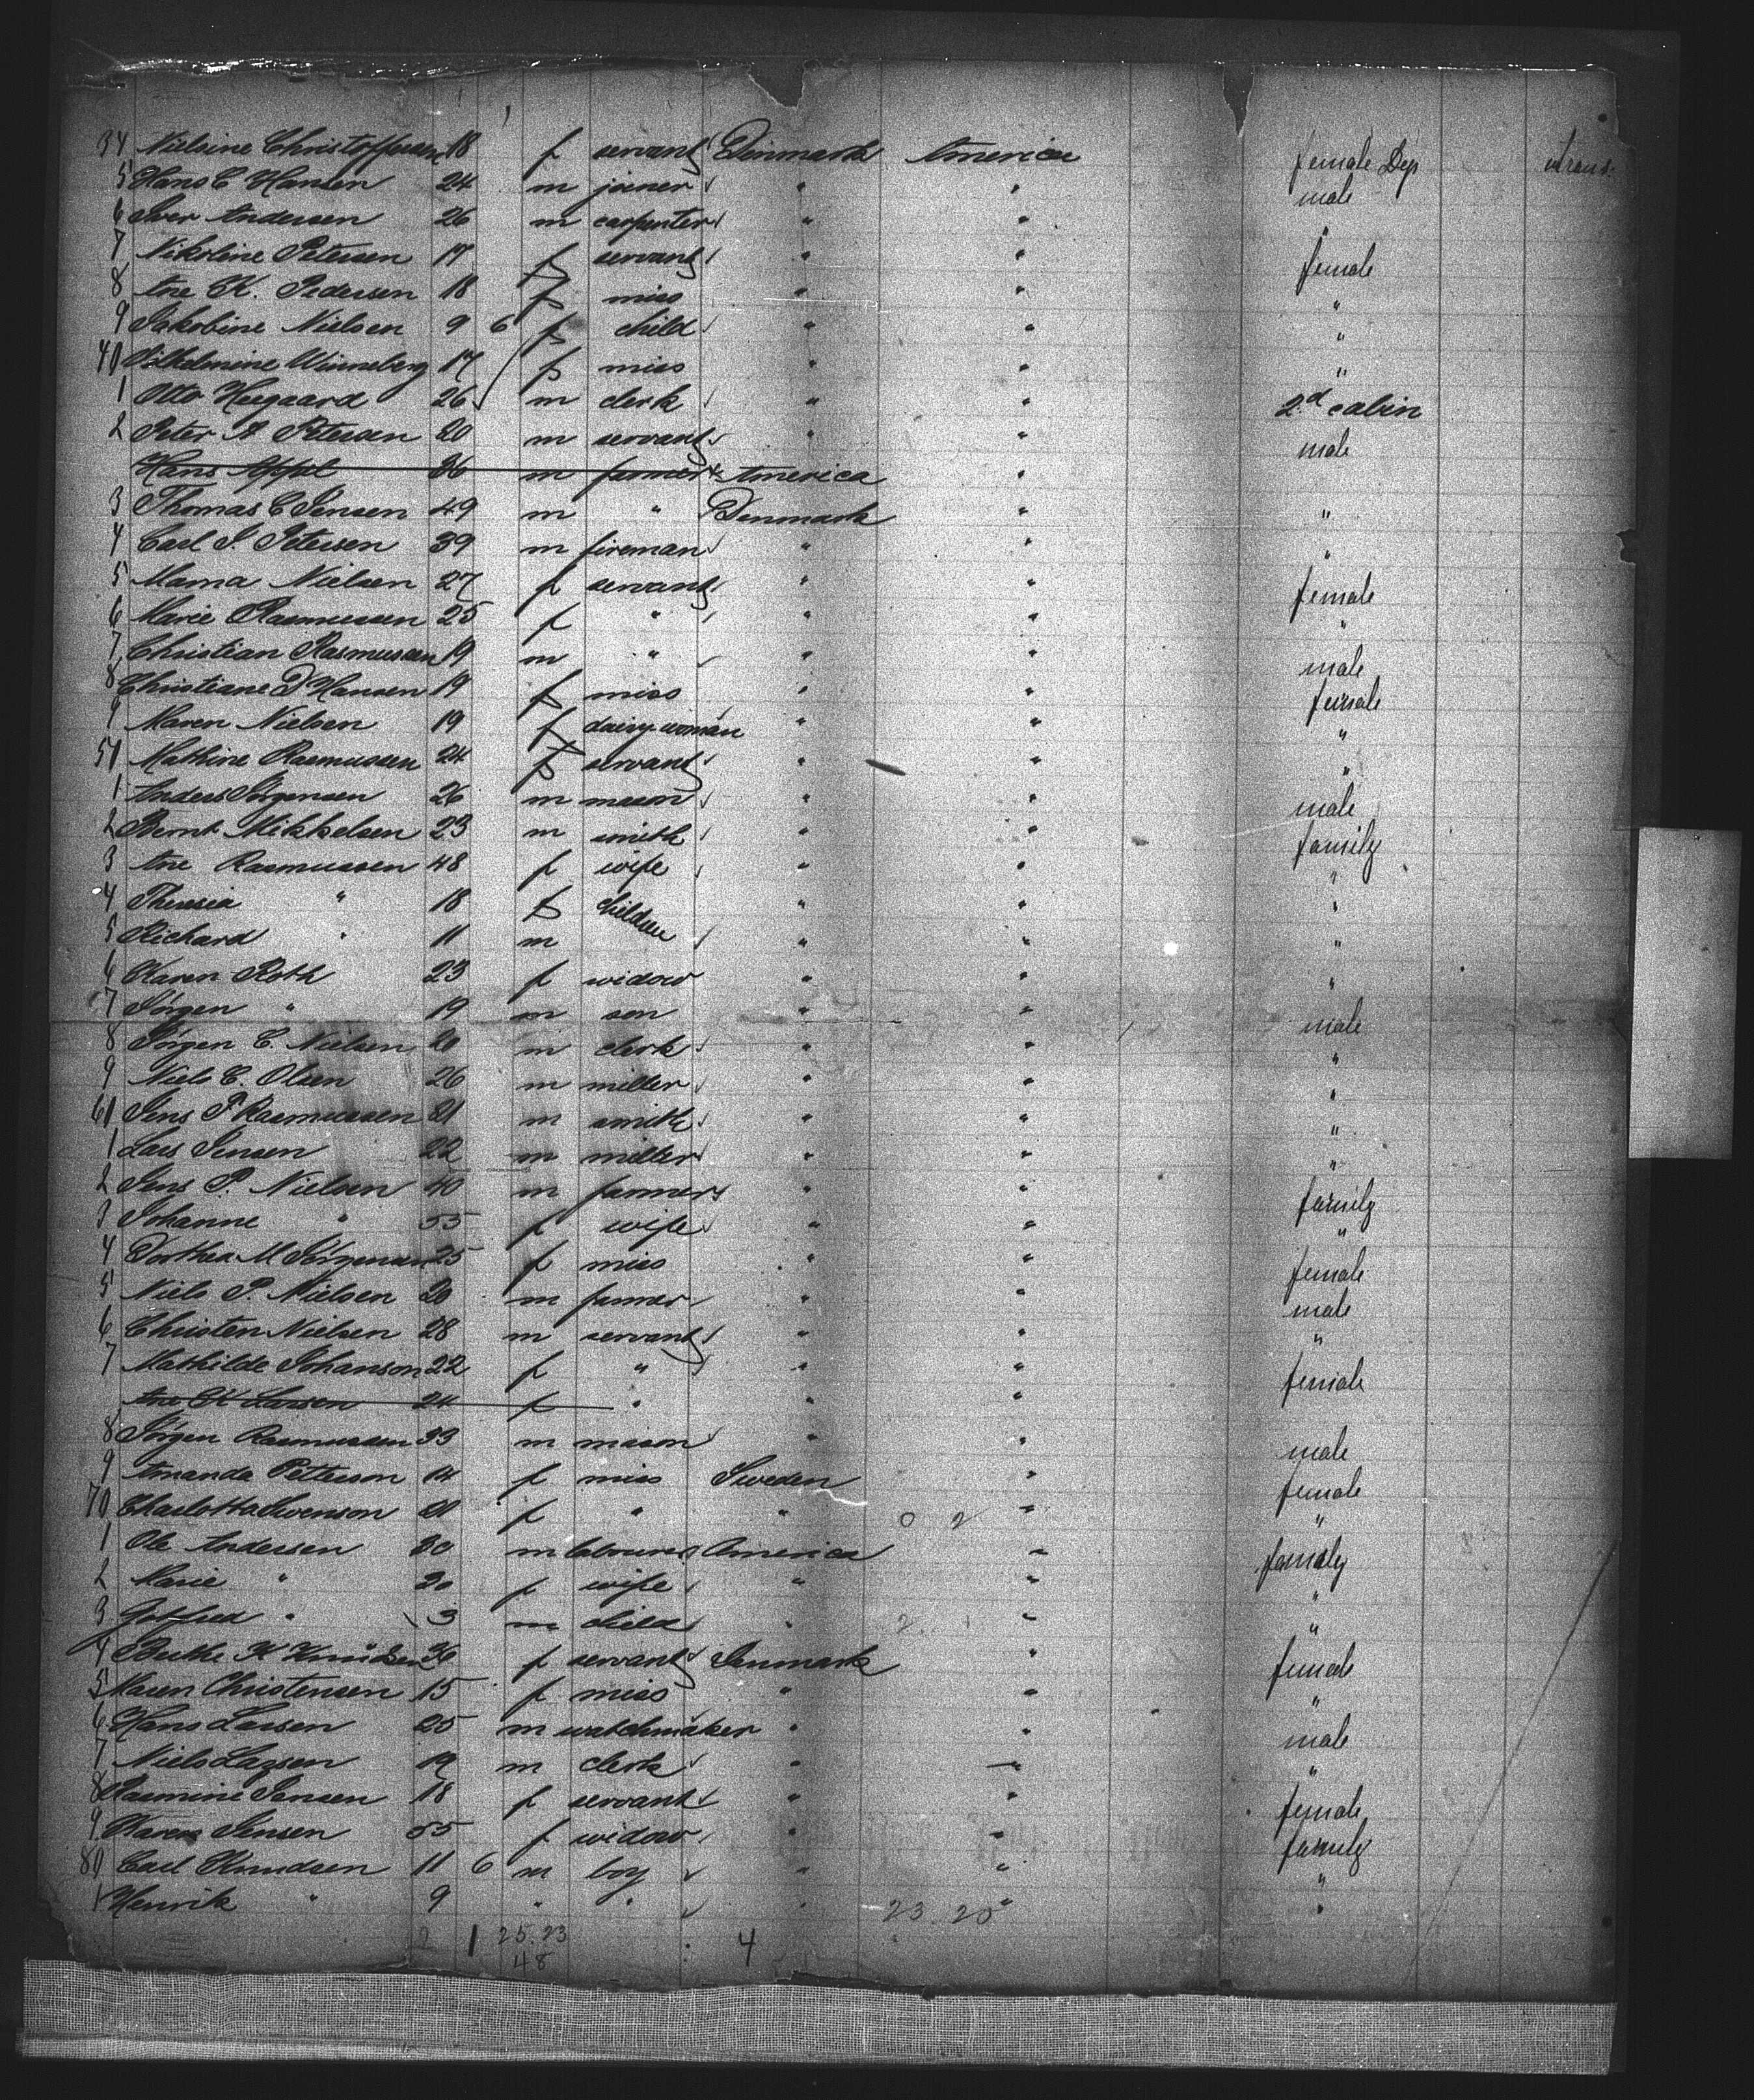 34 Nielsine Christoffersen 18 f servant Denmark America female Dep Trans.
5 Hans C Hansen 24 m joiner " " male
6 Iver Andersen 26 m carpenter " " "
7 Nikoline Petersen 17 f servant " " female
8 Ane K. Pedersen 18 f miss " " "
9 Jakobine Nielsen 9 6 f child " " "
40 Vilhelmine Winneberg 17 f miss " " "
1 Otto Heegaard 26 m clerk " " 2d cabin
2 Peter A Petersen 20 m servant " " male
Hans Appel 36 m farmer America "
3 Thomas C Jensen 49 m " Denmark " "
4 Carl J. Petersen 39 m fireman " " "
5 Mama Nielsen 27 f servant " " female
6 Marie Rasmussen 25 f " " " "
7 Christian Rasmussen 19 m " " " male
8 Christiane D Hansen 19 f miss " " female
9 Maren Nielsen 19 f dairy-woman " " "
50 Mathine Rasmussen 24 f servant " " "
1 Anders Jørgensen 26 m mason " " male
2 Bernt Mikkelsen 23 m smith " " family
3 Ane Rasmussen 48 f wife " " "
4 Theresia " 18 f children " " "
5 Richard " 11 m " " "
6 Karen Roth 23 f widow " " "
7 Jørgen " 19 m son " " male
8 Jørgen C. Nielsen 20 m clerk " " "
9 Niels C. Olsen 26 m miller " " "
60 Jens P Rasmussen 21 m smith " " "
1 Lars Jensen 22 m miller " " "
2 Jens P. Nielsen 40 m farmer " " family
3 Johanne " 55 f wife " " "
4 Dorthea M Jørgensen 25 f miss " " female
5 Niels P. Nielsen 20 m farmer " " male
6 Christen Nielsen 28 m servant " " "
7 Mathilde Johanson 22 f " " " female
Ane K Larsen 24 f " " "
8 Jørgen Rasmussen 33 m mason " " male
9 Amanda Petterson 14 f miss Sweden " female
70 Charlotta Swenson 21 f " " 0 2 " "
1 Ole Andersen 30 m labourer America " family
2 Marie " 30 f wife " " "
3 Gotfred " 3 m child " 2 " "
4 Berthe K Knudsen 36 f servant Denmark " female
5 Maren Christensen 15 f miss " " "
6 Hans Larsen 25 m watchmaker " " male
7 Niels Larsen 19 m clerk " " "
8 Rasmine Jensen 18 f servant " " female
9 Karen Jensen 55 f widow " " family
80 Carl Knudsen 11 6 m boy " " "
1 Henrik " 9 " " " 23 25 " "
2 1 25.23 4
48